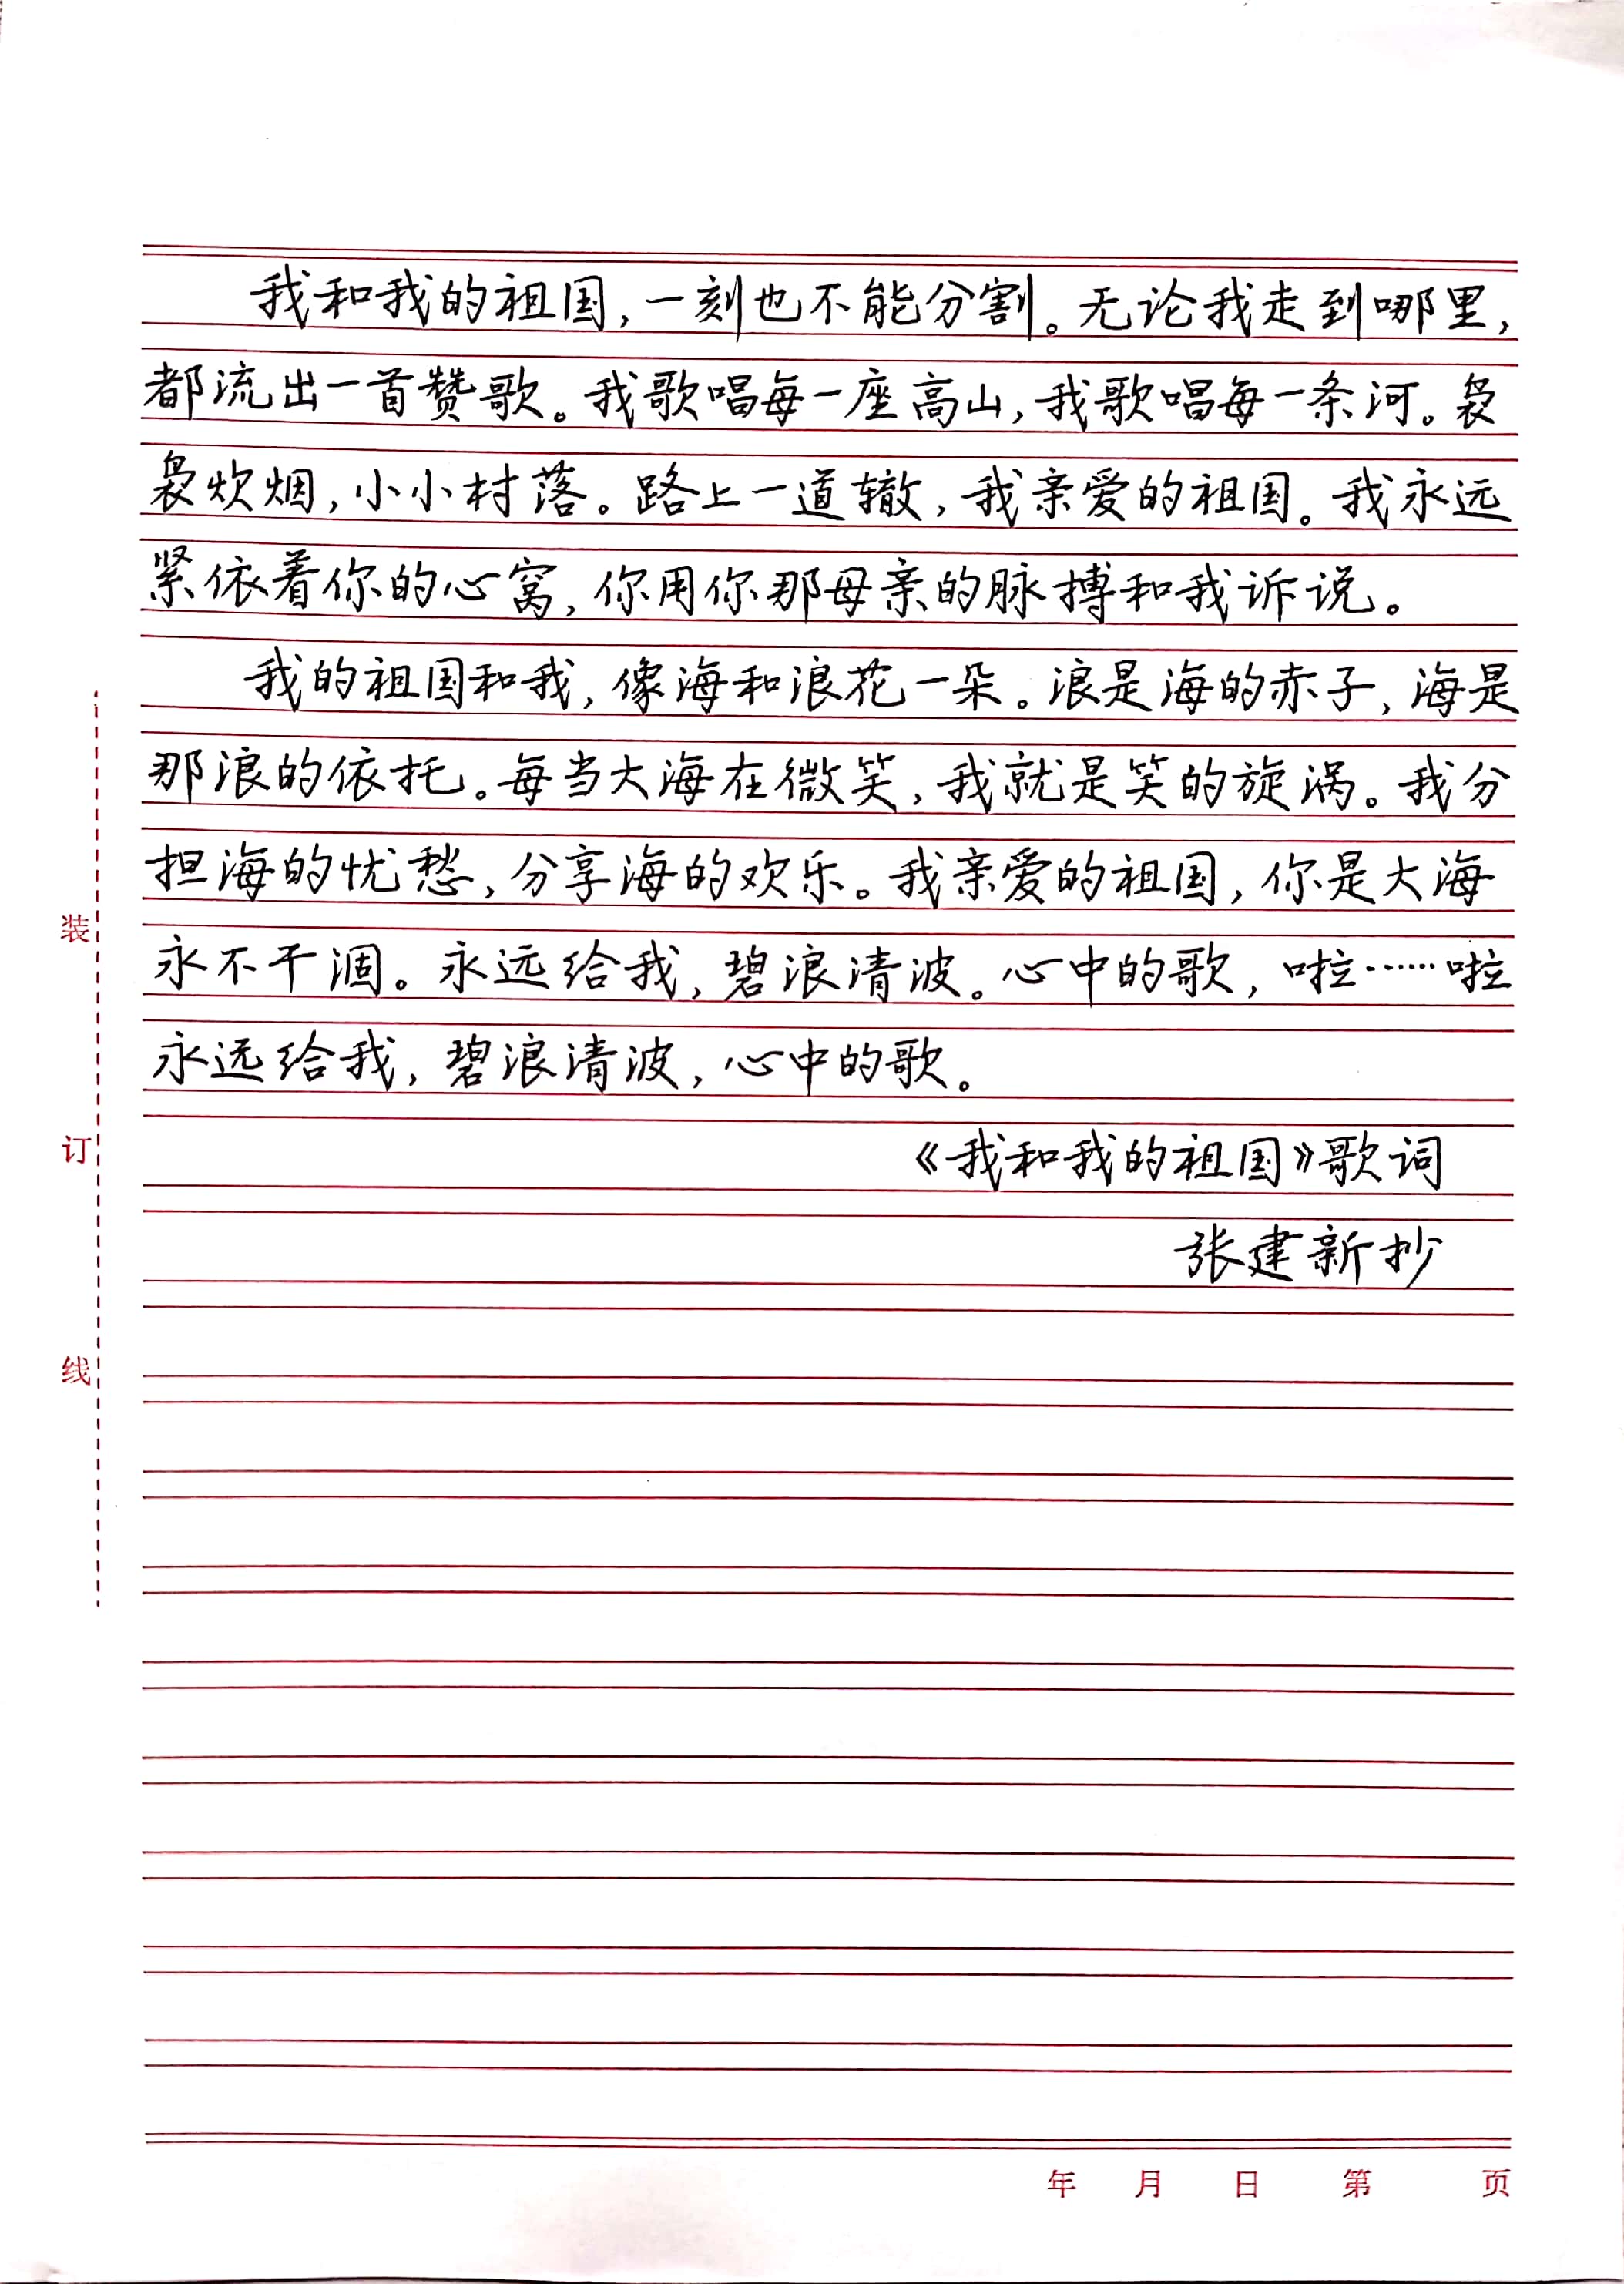 我和我的祖国,一刻也不能分割。无论我走到哪里,
都流出一首赞歌。我歌唱每一座高山,我歌唱每一条河。袅
袅炊烟,小小村落。路上一道辙,我亲爱的祖国。我永远
紧依着你的心窝,你用你那母亲的脉搏和我诉说。
我的祖国和我,像海和浪花一朵。浪是海的赤子,海是
那浪的依托。每当大海在微笑,我就是笑的旋涡。我分
担海的忧愁,分享海的欢乐。我亲爱的祖国,你是大海
永不干涸。永远给我,碧浪清波。心中的歌,啦……啦
永远给我,碧浪清波,心中的歌。
《我和我的祖国》歌词
张建新抄
装
订
线
年 月 日 第 页